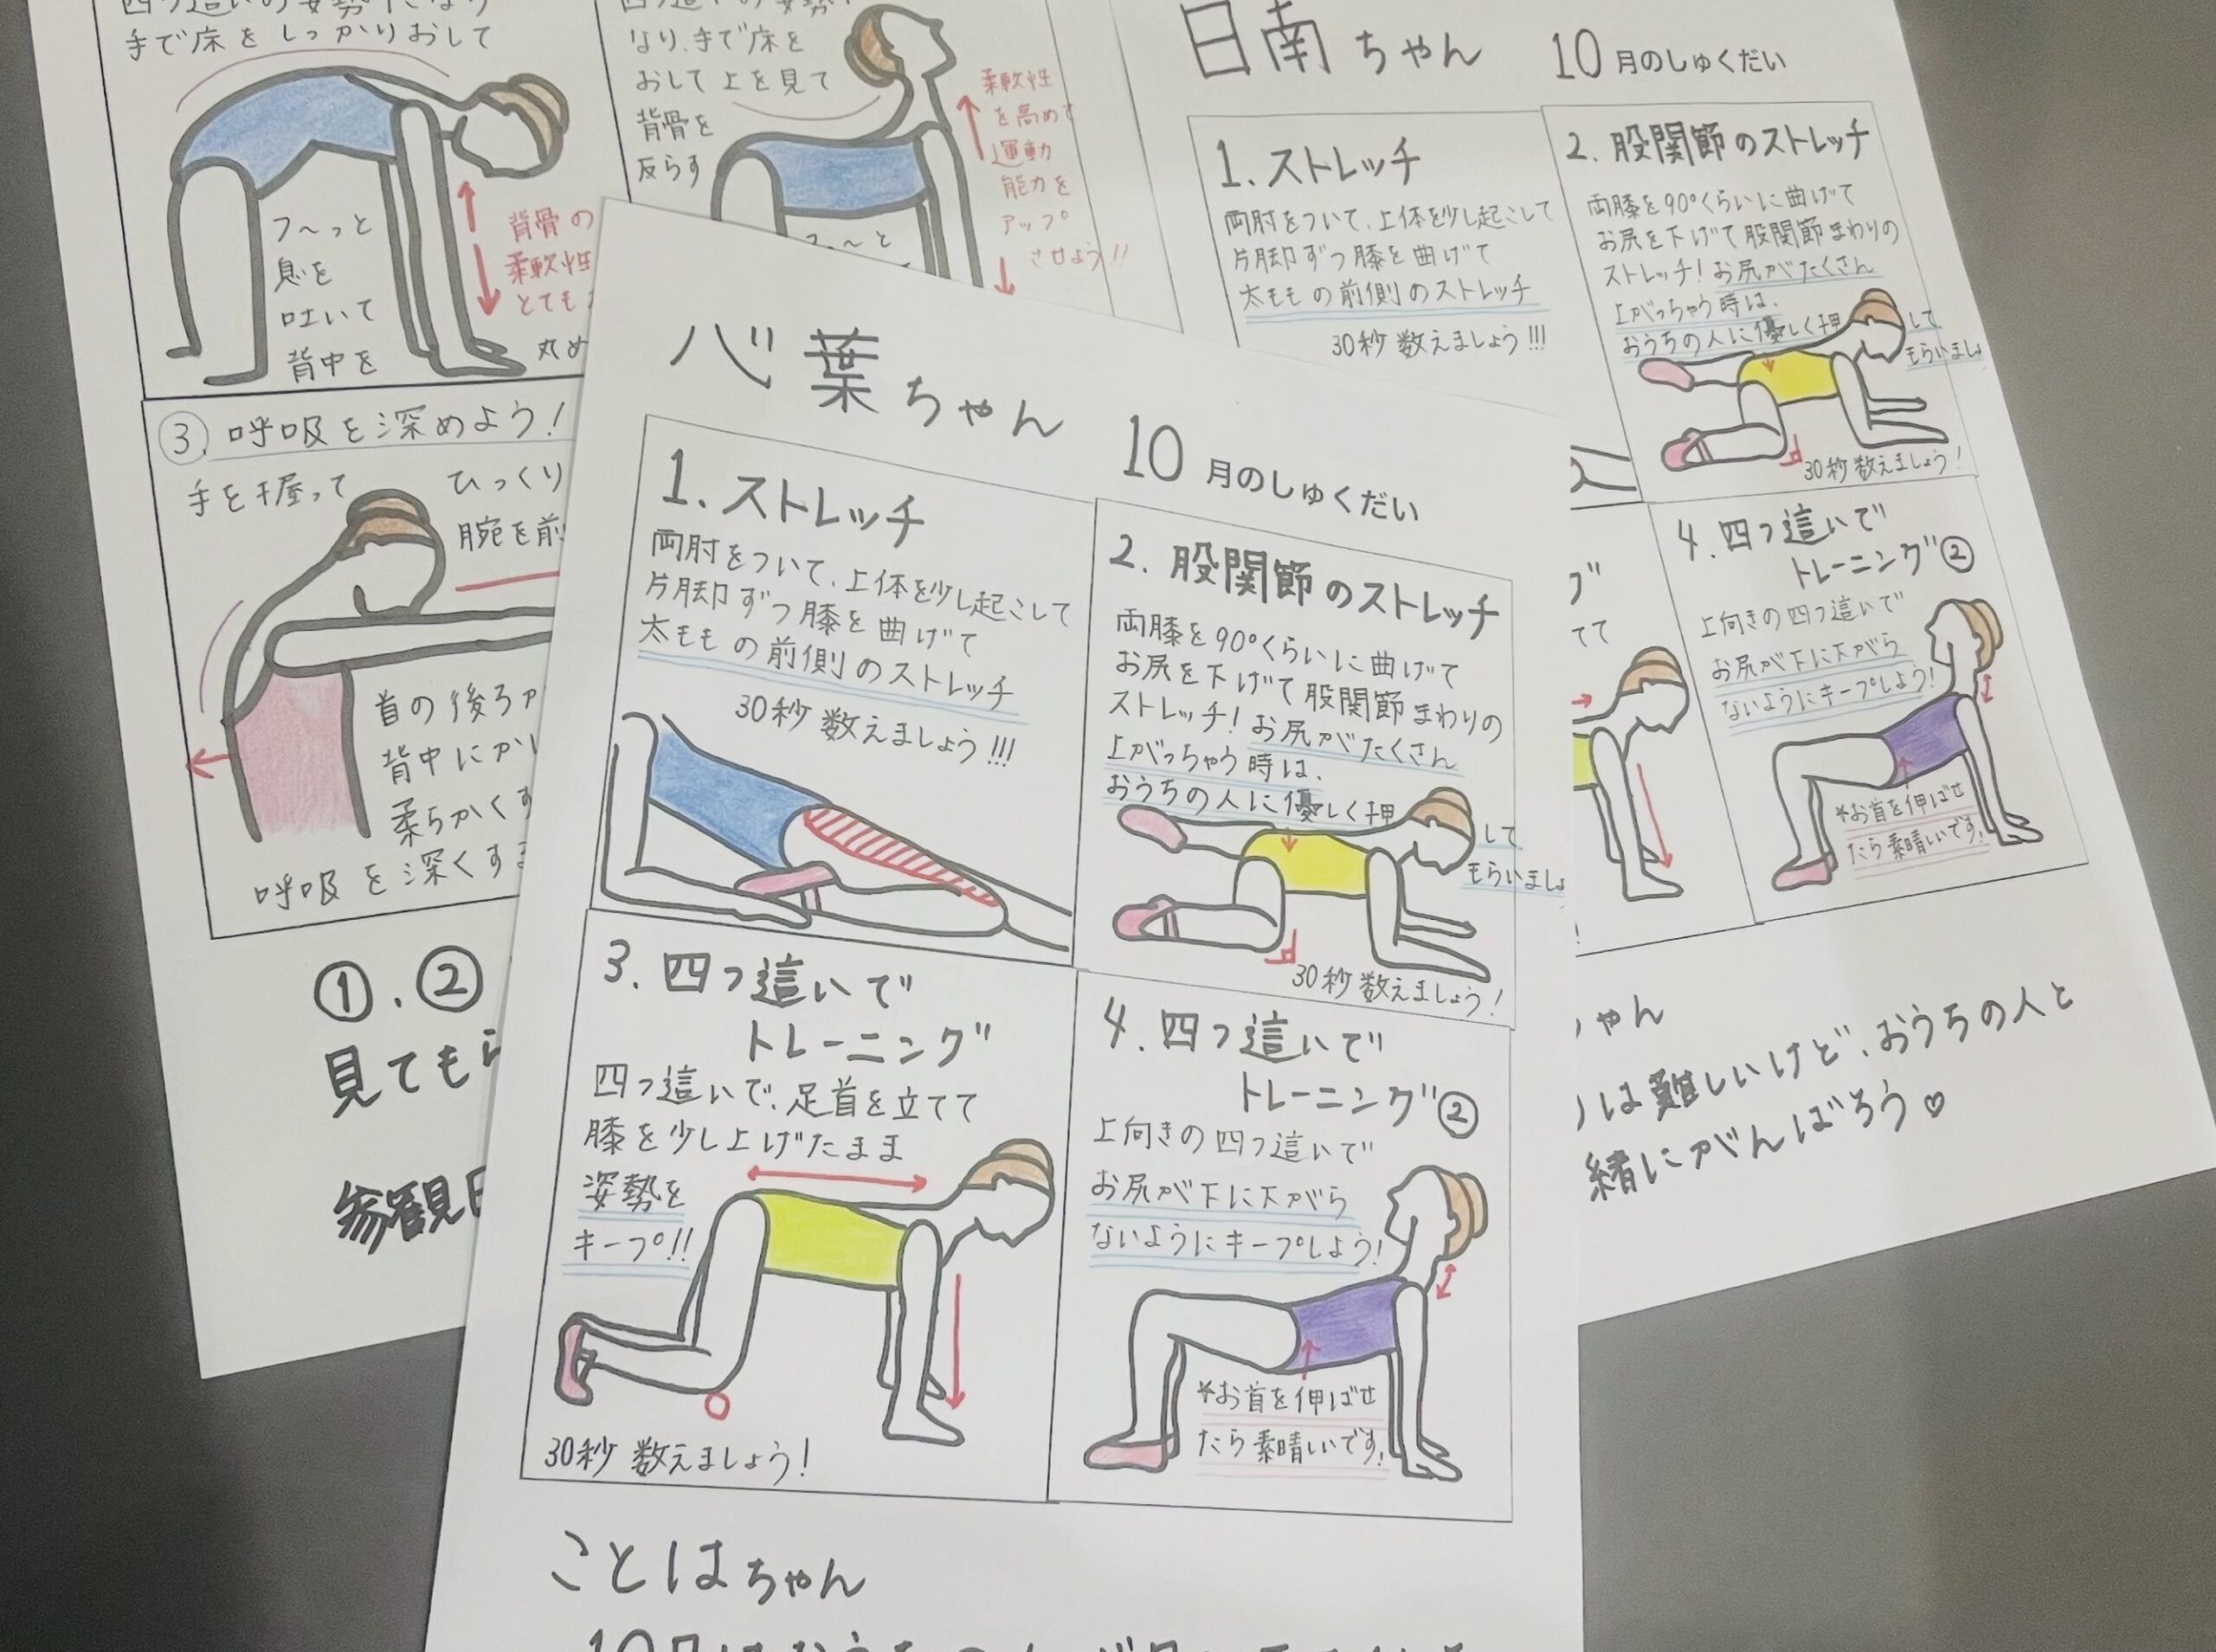 手で床をしっかりおして
フ〜っと
息を
吐いて
背中を
丸め
背骨の
柔軟性
とても
なり、手で床を
おして上を見て
背骨を
反らす
柔軟性
を高めて
運動
能力を
アップ
させよう!!
③. 呼吸を深めよう!
手を握って
腕を前
首の後ろ
背中に
柔らかくす
呼吸を深くする
①.②
見てもら
参観日
日南ちゃん 10月のしゅくだい
1. ストレッチ
両肘をついて、上体を少し起こして
片脚ずつ膝を曲げて
太ももの前側のストレッチ
30秒数えましょう!!!
2. 股関節のストレッチ
両膝を90°くらいに曲げて
お尻を下げて股関節まわりの
ストレッチ!お尻がたくさん
上がっちゃう時は、
おうちの人に優しく押して
もらいましょ
30秒数えましょう!
4. 四つ這いで
トレーニング②
上向きの四つ這いで
お尻が下に下がら
ないようにキープしよう!
*お首を伸ばせ
たら素晴しいです!
ちゃん
は難しいけど、おうちの人と
緒にがんばろう♡
心葉ちゃん 10月のしゅくだい
1. ストレッチ
両肘をついて、上体を少し起こして
片脚ずつ膝を曲げて
太ももの前側のストレッチ
30秒数えましょう!!!
2. 股関節のストレッチ
両膝を90°くらいに曲げて
お尻を下げて股関節まわりの
ストレッチ!お尻がたくさん
上がっちゃう時は、
おうちの人に優しく押して
もらいましょ
30秒数えましょう!
3. 四つ這いで
トレーニング
四つ這いで、足首を立てて
膝を少し上げたまま
姿勢を
キープ!!
30秒数えましょう!
4. 四つ這いで
トレーニング②
上向きの四つ這いで
お尻が下に下がら
ないようにキープしよう!
*お首を伸ばせ
たら素晴しいです!
ことはちゃん